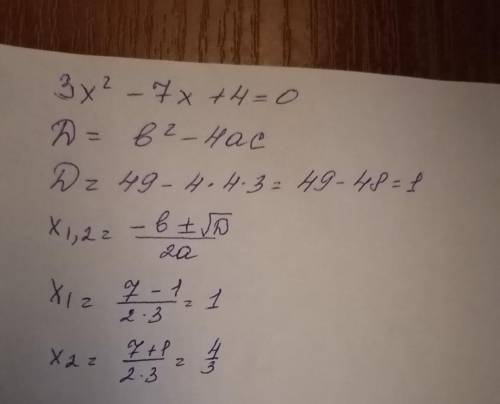 3x² - 7x + 4 = 0
D = b² - 4ac
D = 49 - 4 · 4 · 3 = 49 - 48 = 1
x₁,₂ = (-b ± √D) / 2a
x₁ = (7 - 1) / (2 · 3) = 1
x₂ = (7 + 1) / (2 · 3) = 4/3